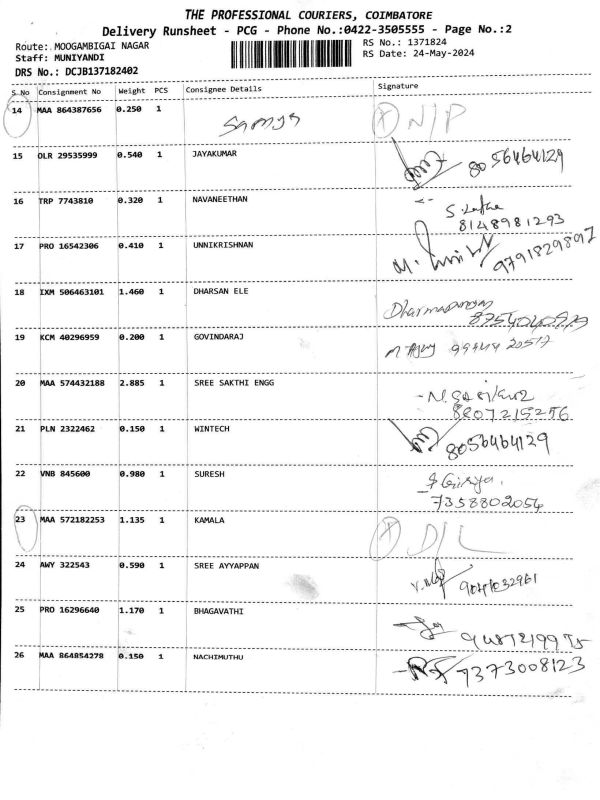 THE PROFESSIONAL COURIERS, COIMBATORE
Delivery Runsheet - PCG - Phone No.:0422-3505555 - Page No.:2
Route: MOOGAMBIGAI NAGAR
Staff: MUNIYANDI
DRS No.: DCJB137182402
RS No.: 1371824
RS Date: 24-May-2024
S No Consignment No Weight PCS Consignee Details Signature
14 MAA 864387656 0.250 1 N/P
15 OLR 29535999 0.540 1 JAYAKUMAR 8056464129
16 TRP 7743810 0.320 1 NAVANEETHAN 8148981293
17 PRO 16542306 0.410 1 UNNIKRISHNAN 9791829897
18 IXM 506463101 1.460 1 DHARSAN ELE
19 KCM 40296959 0.200 1 GOVINDARAJ 99444 20517
20 MAA 574432188 2.885 1 SREE SAKTHI ENGG 8207215256
21 PLN 2322462 0.150 1 WINTECH 8056464129
22 VNB 845600 0.980 1 SURESH 7358802054
23 MAA 572182253 1.135 1 KAMALA D/L
24 AWY 322543 0.590 1 SREE AYYAPPAN
25 PRO 16296640 1.170 1 BHAGAVATHI
26 MAA 864854278 0.150 1 NACHIMUTHU 7373008123